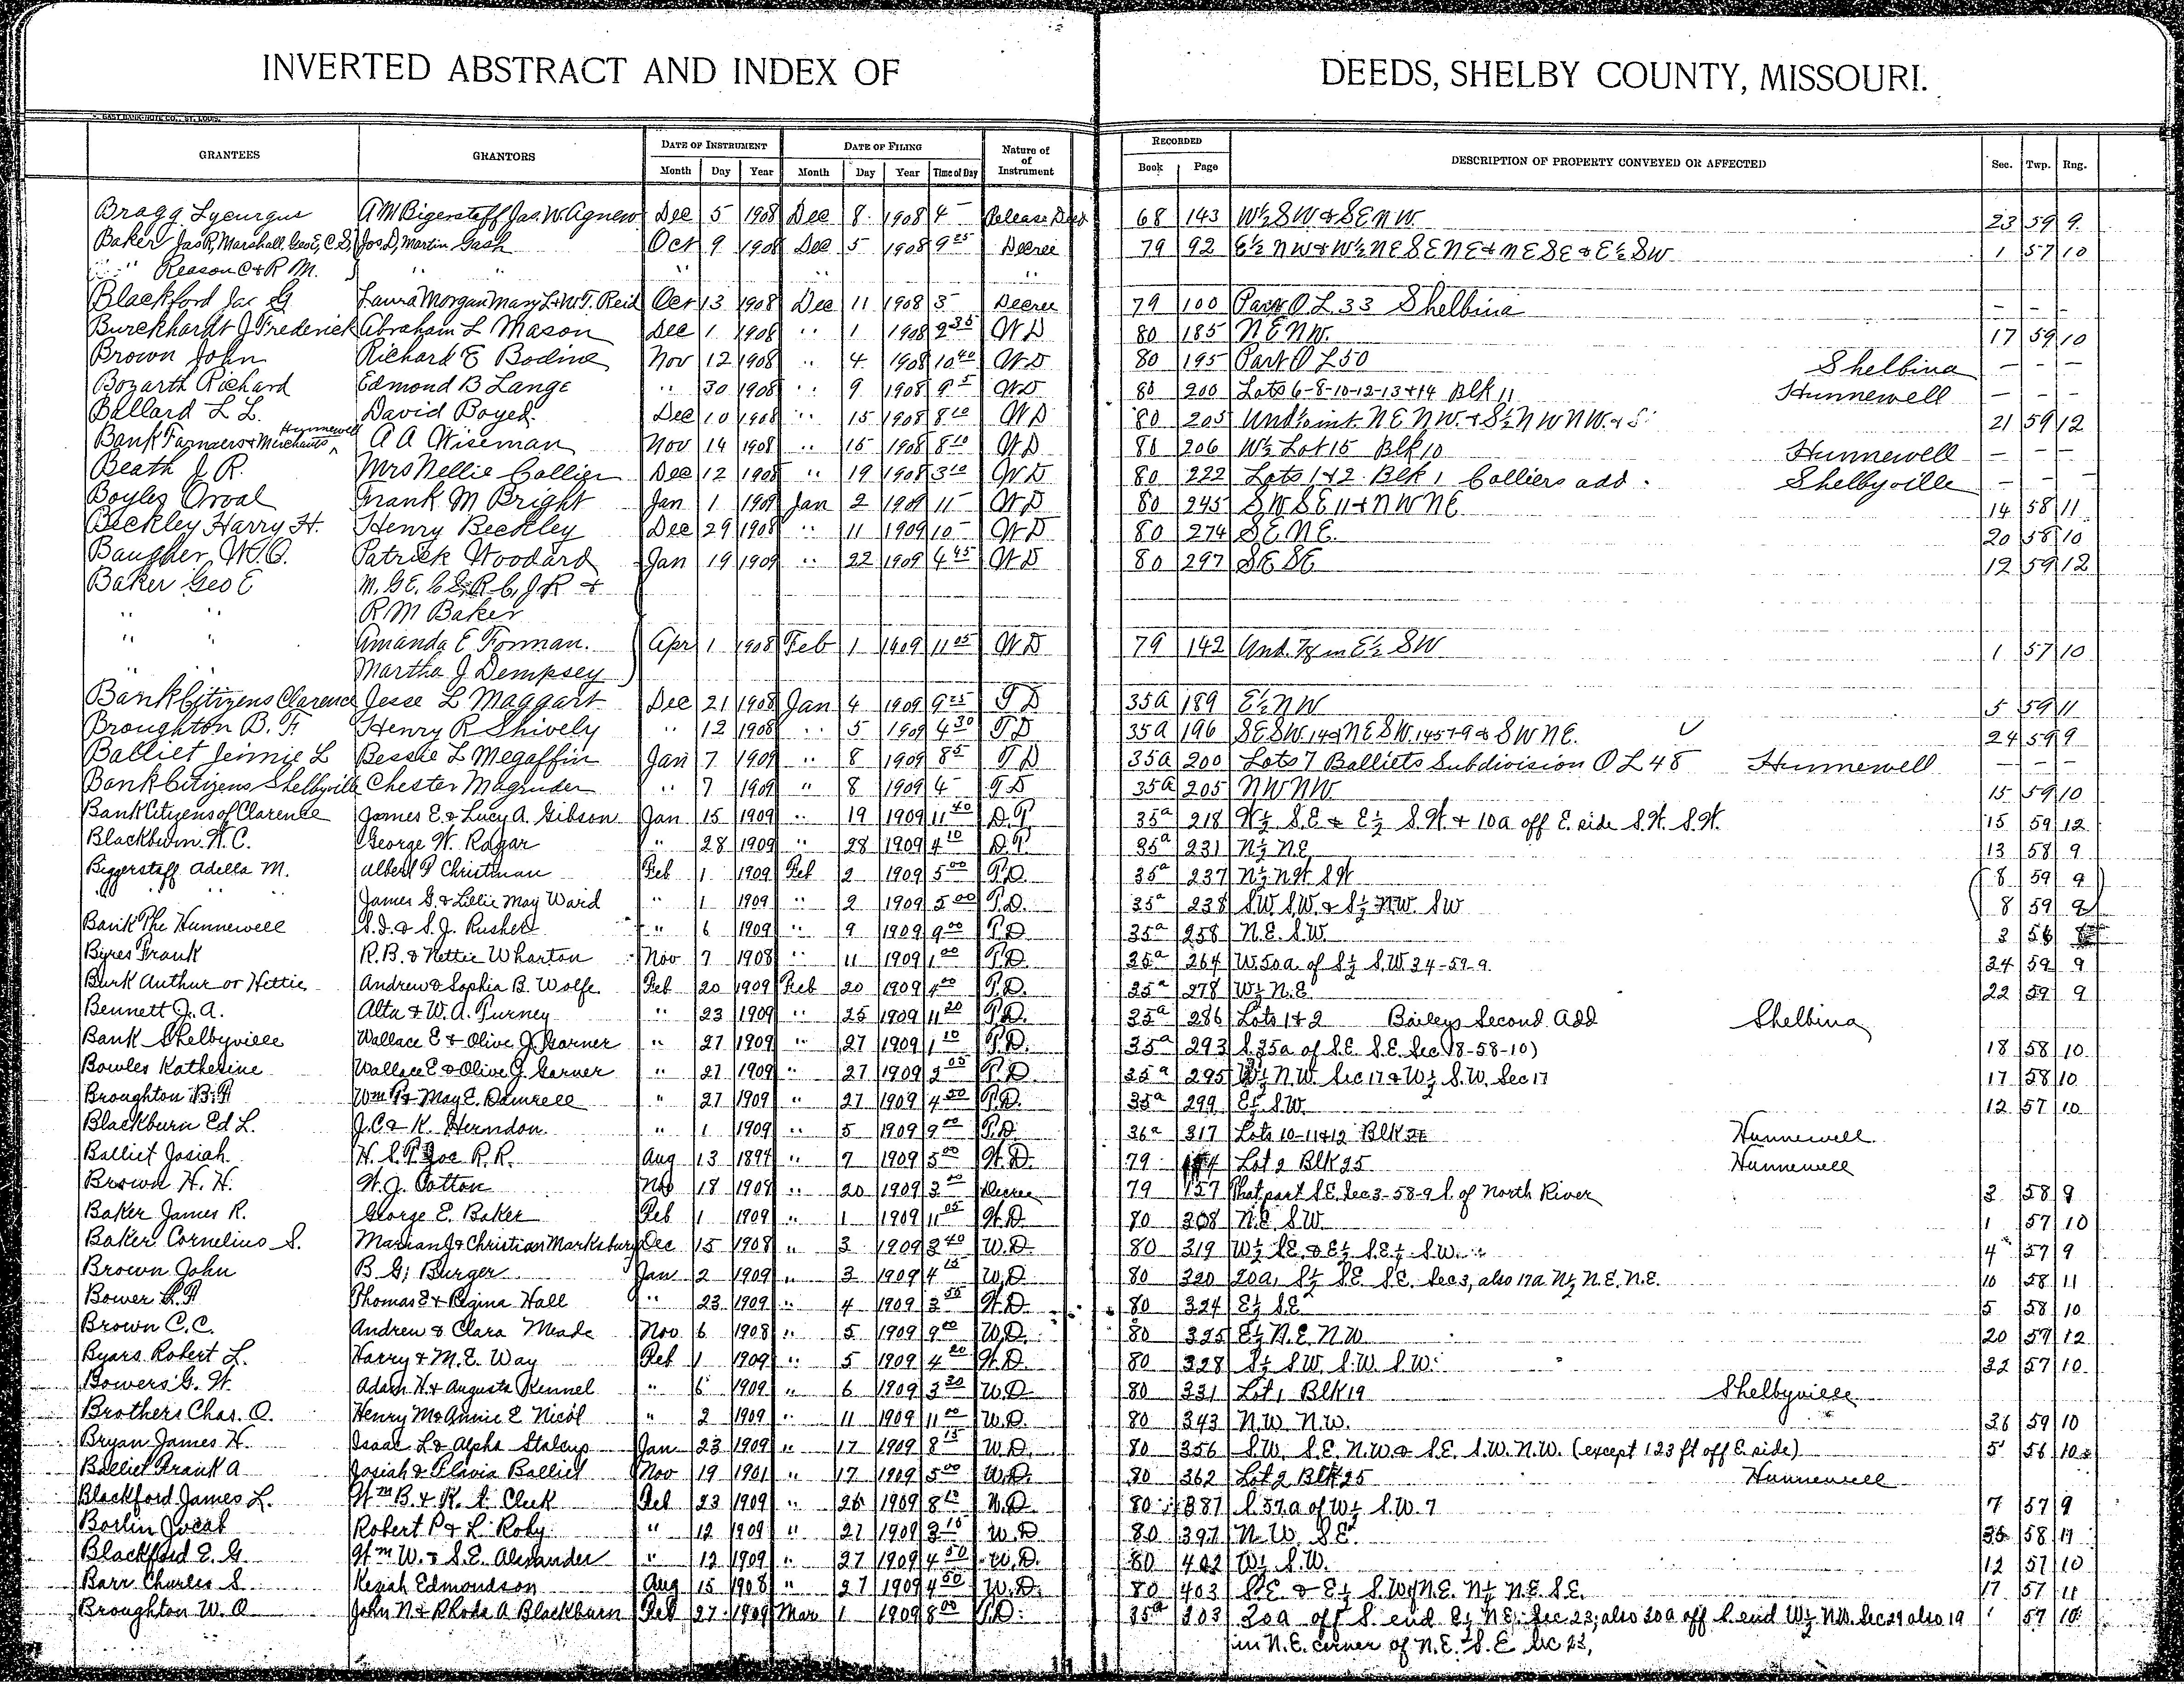 INVERTED ABSTRACT AND INDEX OF DEEDS, SHELBY COUNTY, MISSOURI.
GAST BANK-NOTE CO., ST. LOUIS.
GRANTEES GRANTORS DATE OF INSTRUMENT DATE OF FILING Nature of of Instrument RECORDED DESCRIPTION OF PROPERTY CONVEYED OR AFFECTED Sec. Twp. Rng.
Month Day Year Month Day Year Time of Day Book Page
Bragg Lycurgus A M Bigerstaff Jas. W. Agnew Dec 5 1908 Dec 8 1908 4 – Release Deed 68 143 W½ SW & SE NW 23 59 9
Baker Jas R, Marshall, Geo E, C S, Jos D, Martin Gash Oct 9 1908 Dec 5 1908 9 25 Decree 79 92 E½ NW & W½ NE SE NE & NE SE & E½ SW 1 57 10
" Reason C & R M. " " " "
Blackford Jas G Laura Morgan Mary L & W. T. Reid Oct 13 1908 Dec 11 1908 3 – Decree 79 100 Part O L 33 Shelbina – – –
Burckhardt J Frederick Abraham L Mason Dec 1 1908 " 1 1908 9 35 W D 80 185 NE NW. 17 59 10
Brown John Richard E Bodine Nov 12 1908 " 4 1908 10 40 W D 80 195 Part O L 50 Shelbina – – –
Bozarth Richard Edmond B Lange " 30 1908 " 9 1908 9 5 W D 80 200 Lots 6-8-10-12-13 & 14 Blk 11 Hunnewell – – –
Ballard L L. David Boyed. Dec 10 1908 " 15 1908 8 10 W D 80 205 Und ½ int. NE NW. & S½ NW NW. & 21 59 12
Bank Farmers & Merchants Hunnewell A A Wiseman Nov 14 1908 " 15 1908 8 10 W D 80 206 W½ Lot 15 Blk 10 Hunnewell – – –
Beath J. R. Mrs Nellie Collier Dec 12 1908 " 19 1908 3 10 W D 80 222 Lots 1 & 2 Blk 1 Colliers add. Shelbyville – – –
Boyles Orval Frank M Bright Jan 1 1909 Jan 2 1909 11 – W D 80 245 SW SE 11 & NW NE 14 58 11
Beckley Harry H. Henry Beckley Dec 29 1908 " 11 1909 10 – W D 80 274 SE NE. 20 58 10
Baugher W. O. Patrick Woodard Jan 19 1909 " 22 1909 4 45 W D 80 297 SE SE 12 59 12
Baker Geo E M. G E. C S, R C, J R &
" " R M Baker
" " Amanda E Forman. Apr 1 1908 Feb 1 1909 11 05 W D 79 142 Und. in E½ SW 1 57 10
" " Martha J Dempsey
Bank Citizens Clarence Jesse L Maggart Dec 21 1908 Jan 4 1909 9 25 T D 35a 189 E½ NW 5 59 11
Broughton B. F. Henry R Shively " 12 1908 " 5 1909 4 30 T D 35a 196 SE SW. 14 & NE SW. & SW NE. 24 59 9
Balliet Jennie L Bessie L Megaffin Jan 7 1909 " 8 1909 8 5 T D 35a 200 Lots 7 Balliets Subdivision O L 48 Hunnewell – – –
Bank Citizens Shelbyville Chester Magruder " 7 1909 " 8 1909 4 – T D 35a 205 NW NW. 15 59 10
Bank Citizens of Clarence James E. & Lucy A. Gibson Jan 15 1909 " 19 1909 11 40 D. T. 35a 218 W½ S.E. & E½ S.W. & 10a off E. side S.W. S.W. 15 59 12
Blackburn W. C. George W. Ragar " 28 1909 " 28 1909 4 10 D. T. 35a 231 N½ N.E. 13 58 9
Biggerstaff Adella M. Albert P Christman Feb 1 1909 Feb 2 1909 5 00 T.D. 35a 237 N½ N.W. S.W. 8 59 9
" " " James G. & Lillie May Ward " 1 1909 " 2 1909 5 00 T.D. 35a 238 SW. SW. & S½ NW. SW 8 59 9
Bank The Hunnewell S. J. Rusher " 6 1909 " 9 1909 9 00 T.D. 35a 258 N.E. S.W. 3 56
Byres Frank R. B. & Nettie Wharton Nov 7 1908 " 11 1909 1 00 T.D. 35a 264 W. 50a. of S½ S.W. 34-59-9 34 59 9
Burk Authur or Hettie Andrew & Sophia B. Wolfe Feb 20 1909 Feb 20 1909 4 00 T.D. 35a 278 W½ N.E. 22 59 9
Bennett J. A. Alta & W. A. Turney " 23 1909 " 25 1909 11 20 T.D. 35a 286 Lots 1 & 2 Baileys Second Add Shelbina
Bank Shelbyville Wallace E & Olive J. Garner " 27 1909 " 27 1909 1 10 T.D. 35a 293 S. 35a of S.E. S.E. Sec 18-58-10) 18 58 10
Bowles Katherine Wallace E. & Olive J. Garner " 27 1909 " 27 1909 2 05 T.D. 35a 295 W½ N.W. Sec 17 & W½ S.W. Sec 17 17 58 10
Broughton B. F. Wm P. & May E. Damrell " 27 1909 " 27 1909 4 50 T.D. 35a 299 E½ S.W. 12 57 10
Blackburn Ed L. J. C. & K. Herndon " 1 1909 " 5 1909 9 00 T.D. 36a 317 Lots 10-11 & 12 Blk Hunnewell
Balliet Josiah H. & St. Joe R. R. Aug 13 1894 " 7 1909 5 00 W.D. 79 Lot 2 Blk 25 Hunnewell
Brown H. H. W. J. Cotton Nov 18 1908 " 20 1909 3 Decree 79 157 That part S.E. Sec 3-58-9 S. of North River 3 58 9
Baker James R. George E. Baker Feb 1 1909 " 1 1909 11 05 W.D. 80 308 N.E. S.W. 1 57 10
Baker Cornelius S. Marian J & Christian Marksbury Dec 15 1908 " 3 1909 3 40 W.D. 80 319 W½ S.E. & E½ S.E. ¼ S.W. ¼ 4 57 9
Brown John B. G. Burger Jan 2 1909 " 3 1909 4 15 W.D. 80 320 20a, S½ S.E. S.E. Sec 3, also 17a N½ N.E. N.E. 10 58 11
Bower Thomas E & Regina Hall " 23 1909 " 4 1909 3 W.D. 80 324 E½ S.E. 5 58 10
Brown C. C. Andrew & Clara Meade Nov 6 1908 " 5 1909 9 00 W.D. 80 325 E½ N.E. N.W. 20 59 12
Byars Robert L. Harry & M. E. Way Feb 1 1909 " 5 1909 4 20 W.D. 80 328 S½ S.W. S.W. S.W. 32 57 10
Bowers G. W. Adam H & Augusta Kennel " 6 1909 " 6 1909 3 30 W.D. 80 331 Lot 1 Blk 19 Shelbyville
Brothers Chas. O. Henry M & Annie E Nicol " 2 1909 " 11 1909 11 00 W.D. 80 343 N.W. N.W. 36 59 10
Bryan James H. Isaac L & Alpha Stalcup Jan 23 1909 " 17 1909 8 15 W.D. 80 356 S.W. S.E. N.W. & S.E. S.W. N.W. (except 123 ft off E. side) 5 56 10
Balliet Frank A Josiah & Flavia Balliet Nov 19 1901 " 17 1909 5 00 W.D. 80 362 Lot 2 Blk 25 Hunnewell
Blackford James L. Wm B. & K. A. Cleek Feb 23 1909 " 26 1909 8 W.D. 80 387 S. 57a of W½ S.W. 7 7 57 9
Boslin Jocab Robert P & L. Roby " 12 1909 " 27 1909 3 15 W.D 80 397 N.W. S.E. 35 58 11
Blackford E. G. Wm W. & S. E. Alexander " 12 1909 " 27 1909 4 50 W.D. 80 402 W½ S.W. 12 57 10
Barr Charles S. Keziah Edmondson Aug 15 1908 " 27 1909 4 50 W.D. 80 403 S.E. & E½ S.W. N.E. N½ N.E. S.E. 17 57 11
Broughton W. O John N & Rhoda A Blackburn Feb 27 1909 Mar 1 1909 8 00 T.D. 35a 303 20a off S. end E½ N.E. Sec 23; also 20a off S. end W½ N.W. Sec 24 also 19 57 10
in N.E. corner of N.E. S.E. Sec 23,